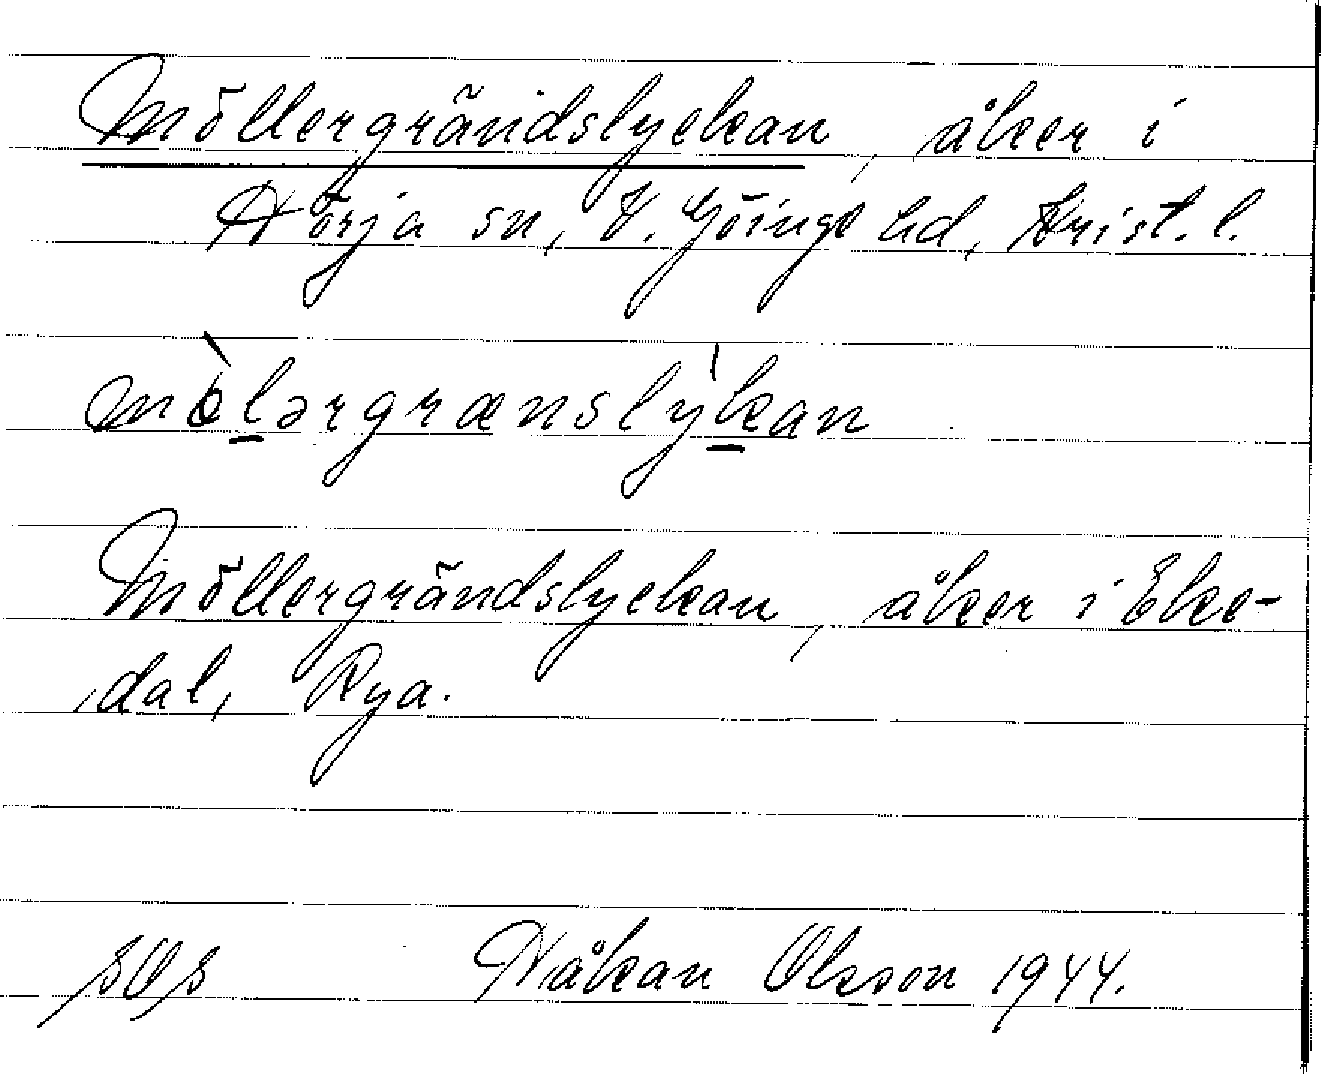 Möllergrändslyckan, åker i
Hörja sn, V. Göinge hd, Krist. l.
mòlərgrænslýkan
Möllergrändslyckan, åker i Eke-
dal, Rya.
SOS Håkan Olsson 1944.